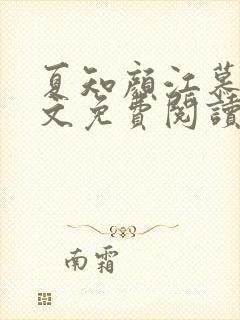 夏知顏江慕
文免費閱讀
南霜